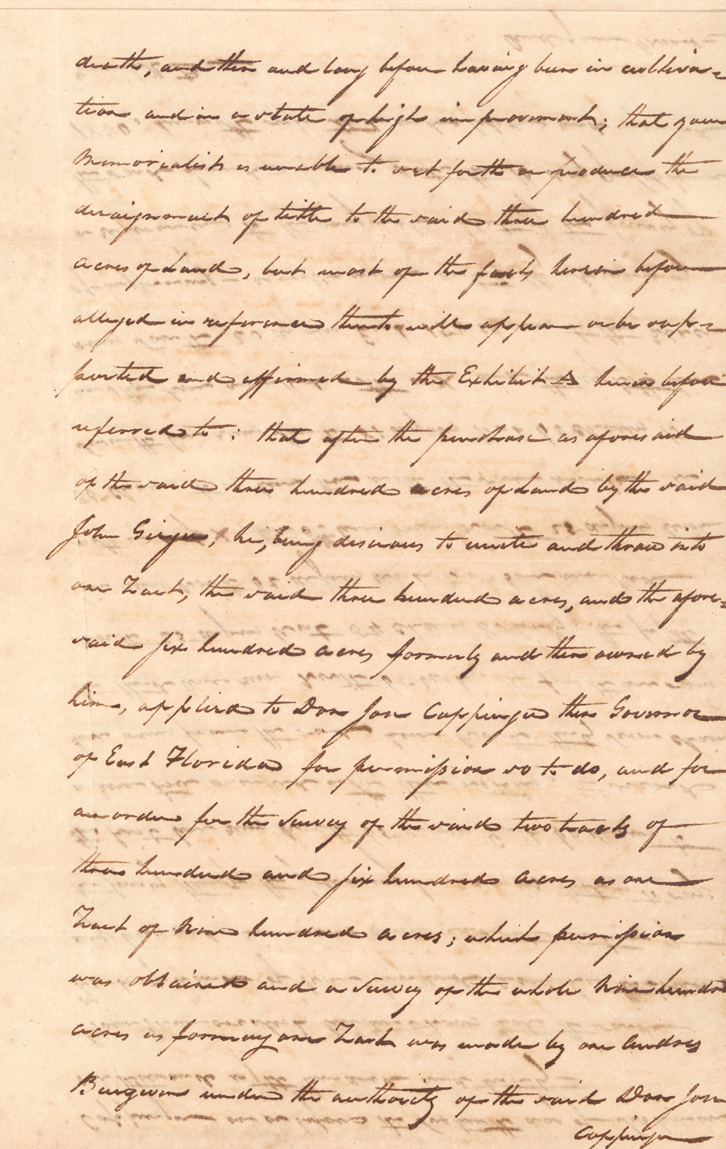 death, and then and long before having been in cultiva=
tion and in a state of high improvement; that your
Memorialist is unable to set forth or produce the
deraignment of title to the said three hundred
acres of Land, but most of the facts herein before
alleged in reference thereto will appear or be sup=
ported and affirmed by the Exhibit herein before
referred to: that after the purchase as aforesaid
of the said three hundred acres of Land by the said
John he, being desirous to unite and throw into
one Tract, the said three hundred acres, and the afore=
said six hundred acres formerly and then owned by
him, applied to Don Jose Coppinger then Governor
of East Florida for permission so to do, and for
an order for the Survey of the said two tracts of
three hundred and six hundred acres as one
Tract of Nine hundred acres; which permission
was obtained and a Survey of the whole Nine hundred
acres as forming one Tract was made by one Andres
Burgevin under the authority of the said Don Jose
Coppinger